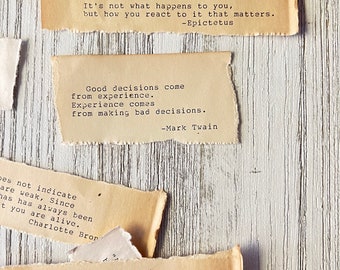 It's not what happens to you,
but how you react to it that matters.
-Epictetus
Good decisions come
from experience.
Experience comes
from making bad decisions.
-Mark Twain
not indicate
are weak, Since
has always been
you are alive.
Charlotte